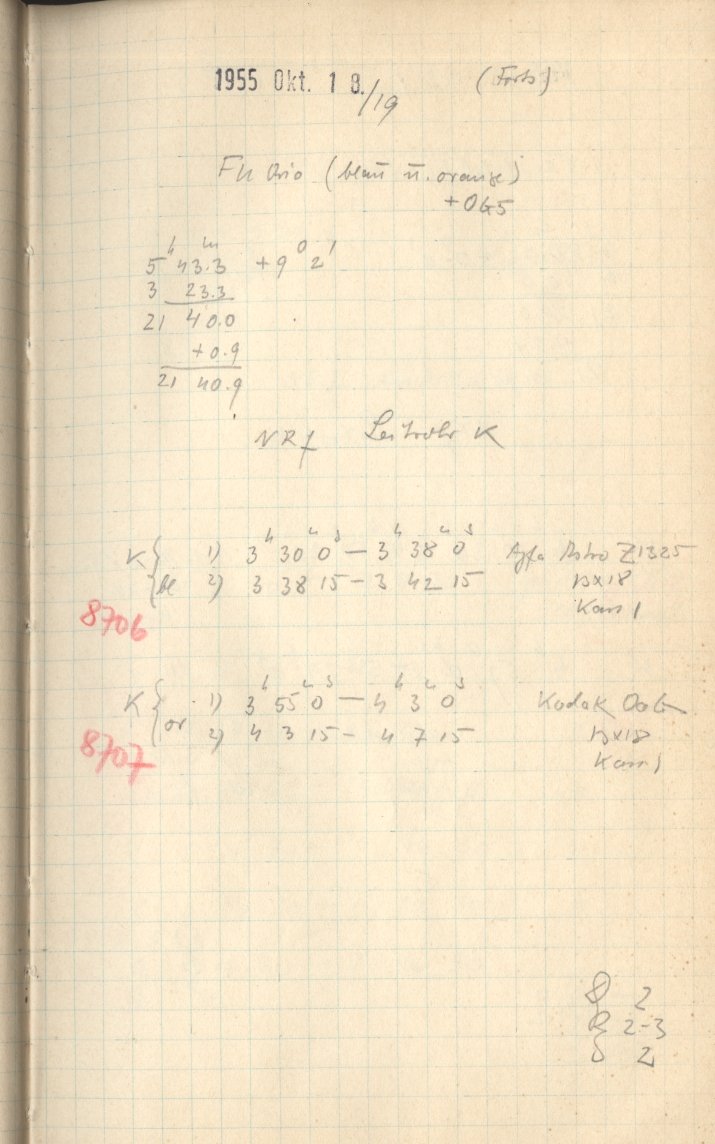 1955 Okt. 18./19 (Forts)
FU Orio (blau u. orange)
+ OG5
5ʰ 43.3ᵐ +9° 2'
3 23.3
21 40.0
+0.9
21 40.9
NRf Leitrohr K
K { 1) 3ʰ 30ᵐ 0ˢ — 3ʰ 38ᵐ 0ˢ Agfa Astro Z1325
{ bl 2) 3 38 15 — 3 42 15 13x18
8706 Kass 1
K { 1) 3ʰ 55ᵐ 0ˢ — 4ʰ 3ᵐ 0ˢ Kodak OaG
{ or 2) 4 3 15 — 4 7 15 13x18
8707 Kass 1
2
R 2-3
2